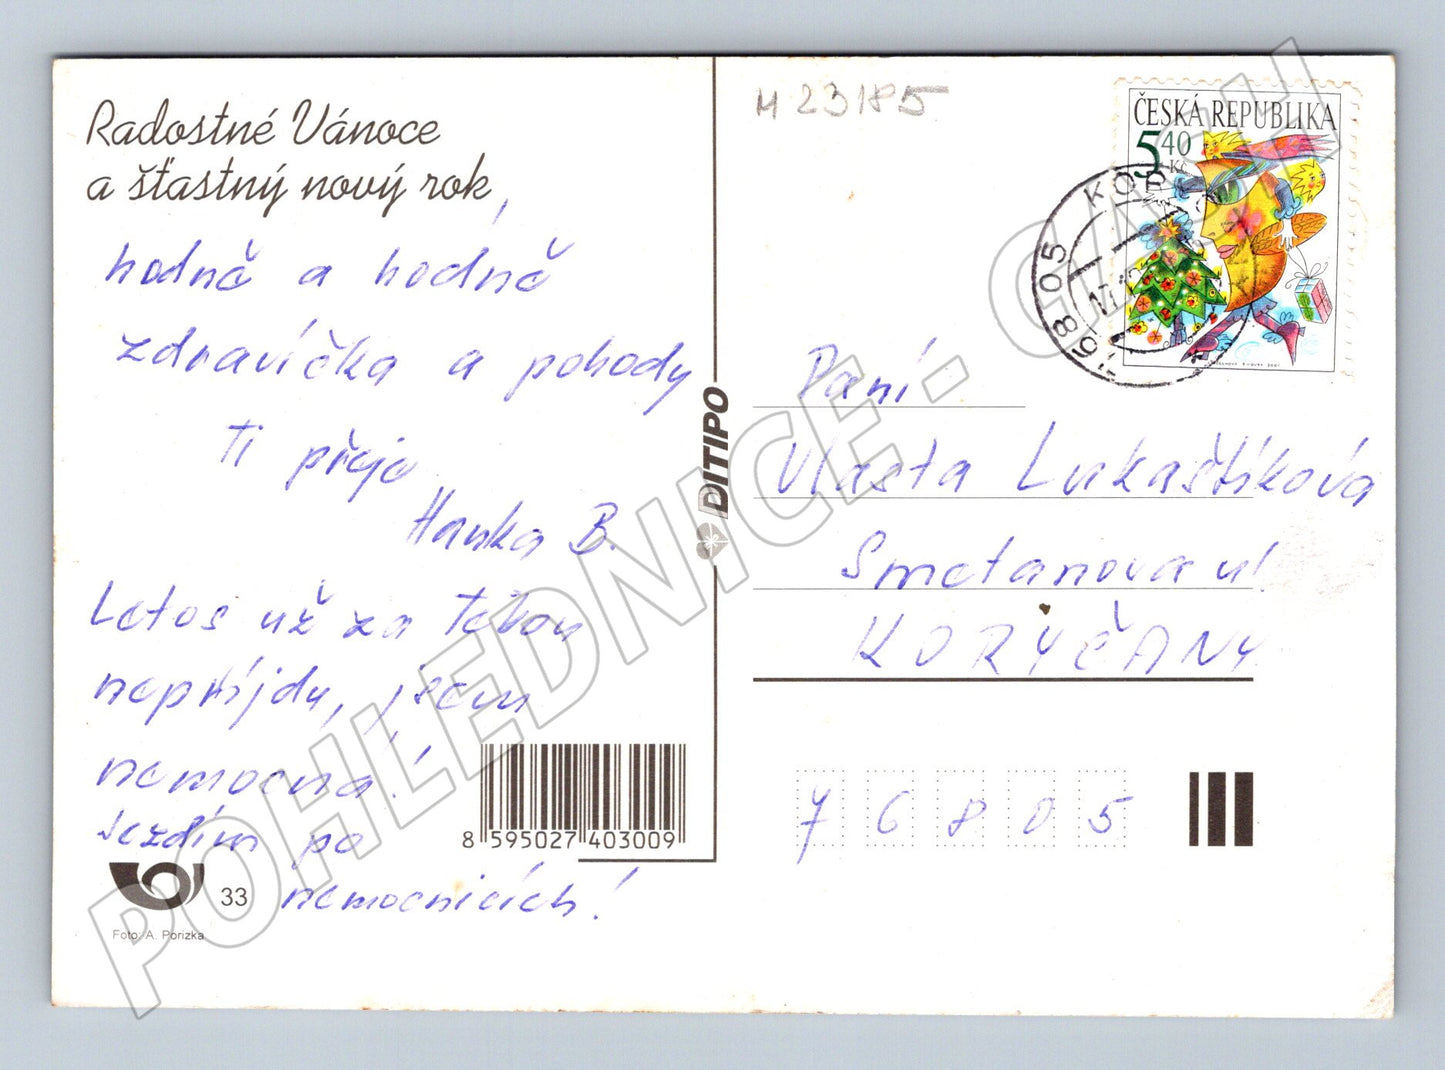 Radostné Vánoce
a šťastný nový rok,
hodně a hodně
zdravíčka a pohody
Ti přeje
Hanka B.
Letos už za Tebou
nepřijdu, jsem
nemocná!
Jezdím po
nemocnicích!
33
Foto: A. Porizka
8 595027 403009
DITIPO
M 23185
ČESKÁ REPUBLIKA
5,40
Kč
768 05 KOR
17.12
Paní
Vlasta Lukaštíková
Smetanova ul
KORYČANY
76805
POHLEDNICE - GASH